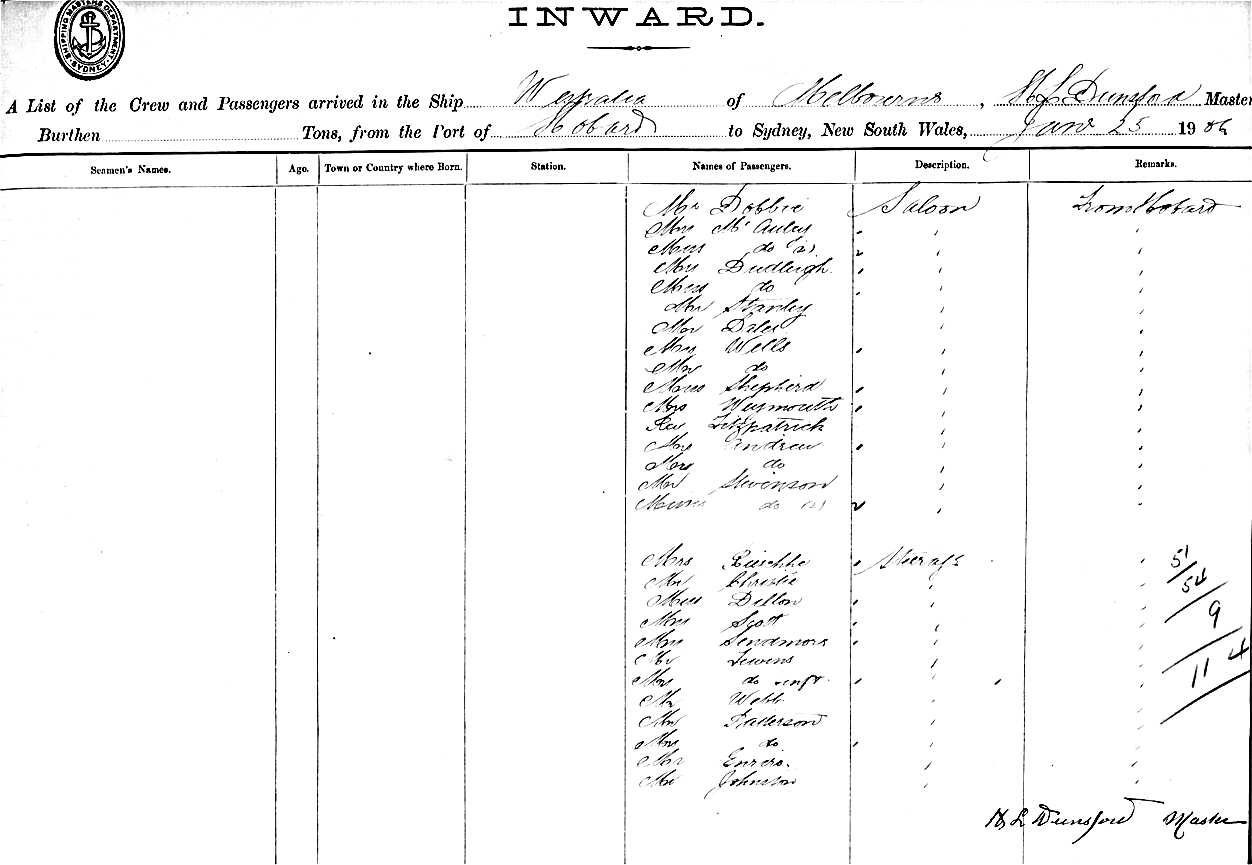 SHIPPING MASTERS DEPARTMENT. SYDNEY.
INWARD.
A List of the Crew and Passengers arrived in the Ship Westralia of Melbourne, H L Dunsford Master
Burthen Tons, from the Port of Hobart to Sydney, New South Wales, Janr 25 1906
Seamen's Names. Age. Town or Country where Born. Station. Names of Passengers. Description. Remarks.
Mr Dobbie Saloon From Hobart
Mrs McAuley " "
Miss do (2) "
Mrs Dudleigh " "
Miss do " "
Mr Stanley " "
Mr " "
Mrs Wells " "
Mr do " "
Miss Shepherd " "
Mrs Weymouth " "
Rev Fitzpatrick " "
Mrs Andrew " "
Miss do " "
Mr Stevenson " "
Misses do (2) " "
Mrs Steerage "
51
Mr Christie " "
54
Miss Dillon " "
Mrs Scott " "
9
Mrs " "
Mr " "
114
Mrs do inft. " "
Mr Webb " "
Mr Patterson " "
Mrs do " "
Mr " "
Mr Johnson " "
H L Dunsford Master